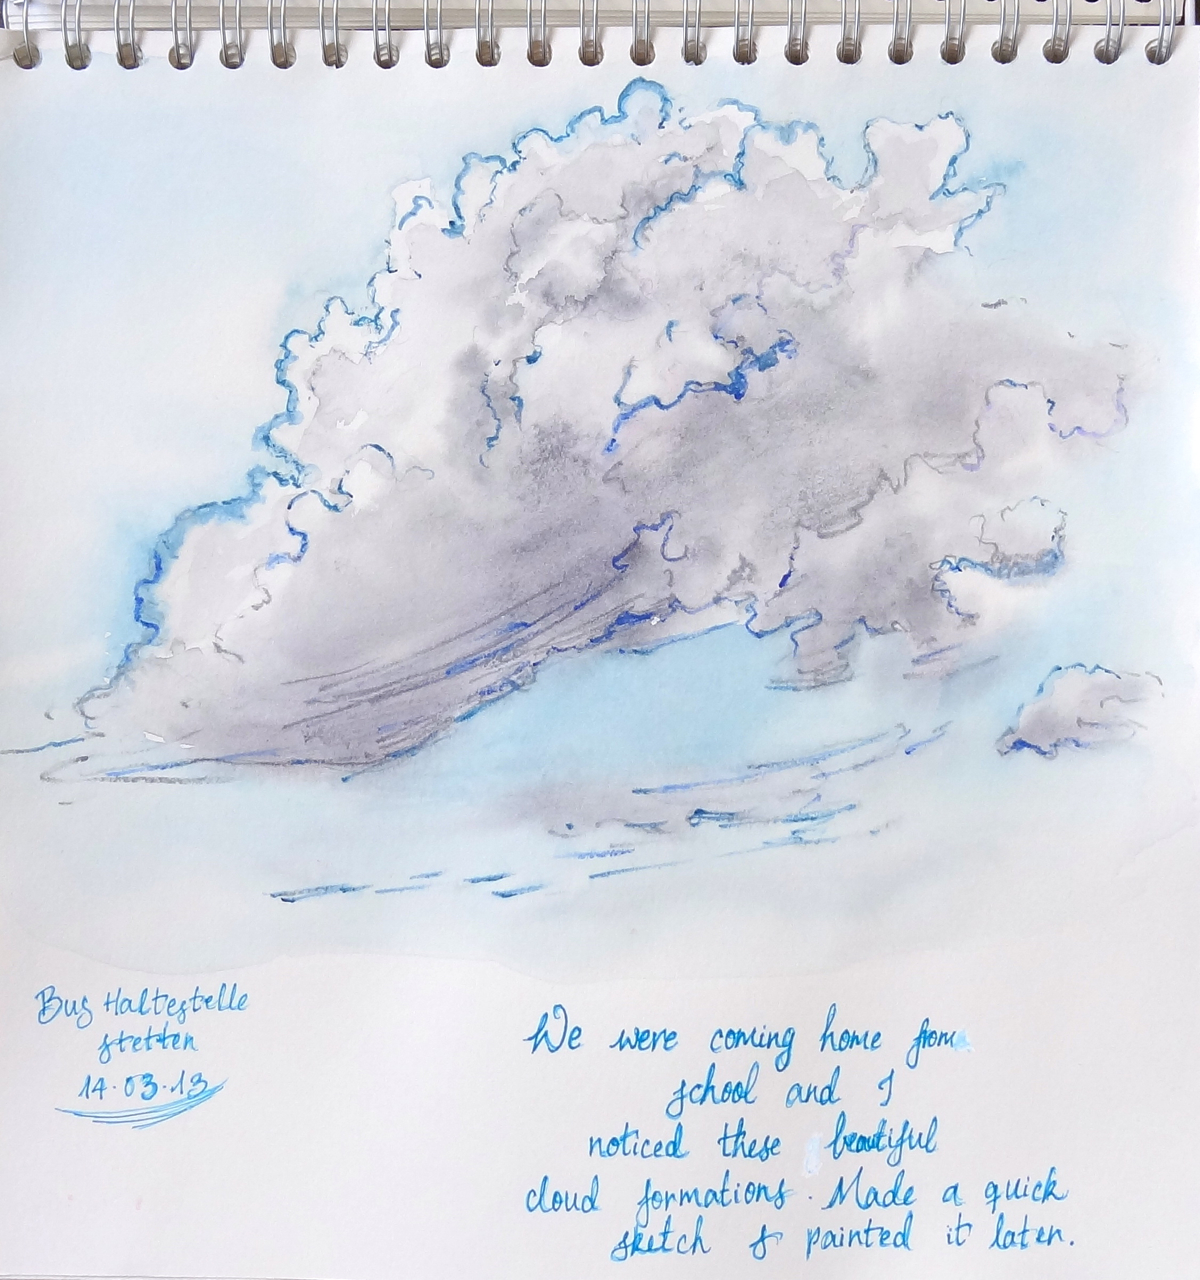 Bus Haltestelle
stetten
14.03.13
We were coming home from
school and I
noticed these beautiful
cloud formations. Made a quick
sketch & painted it later.